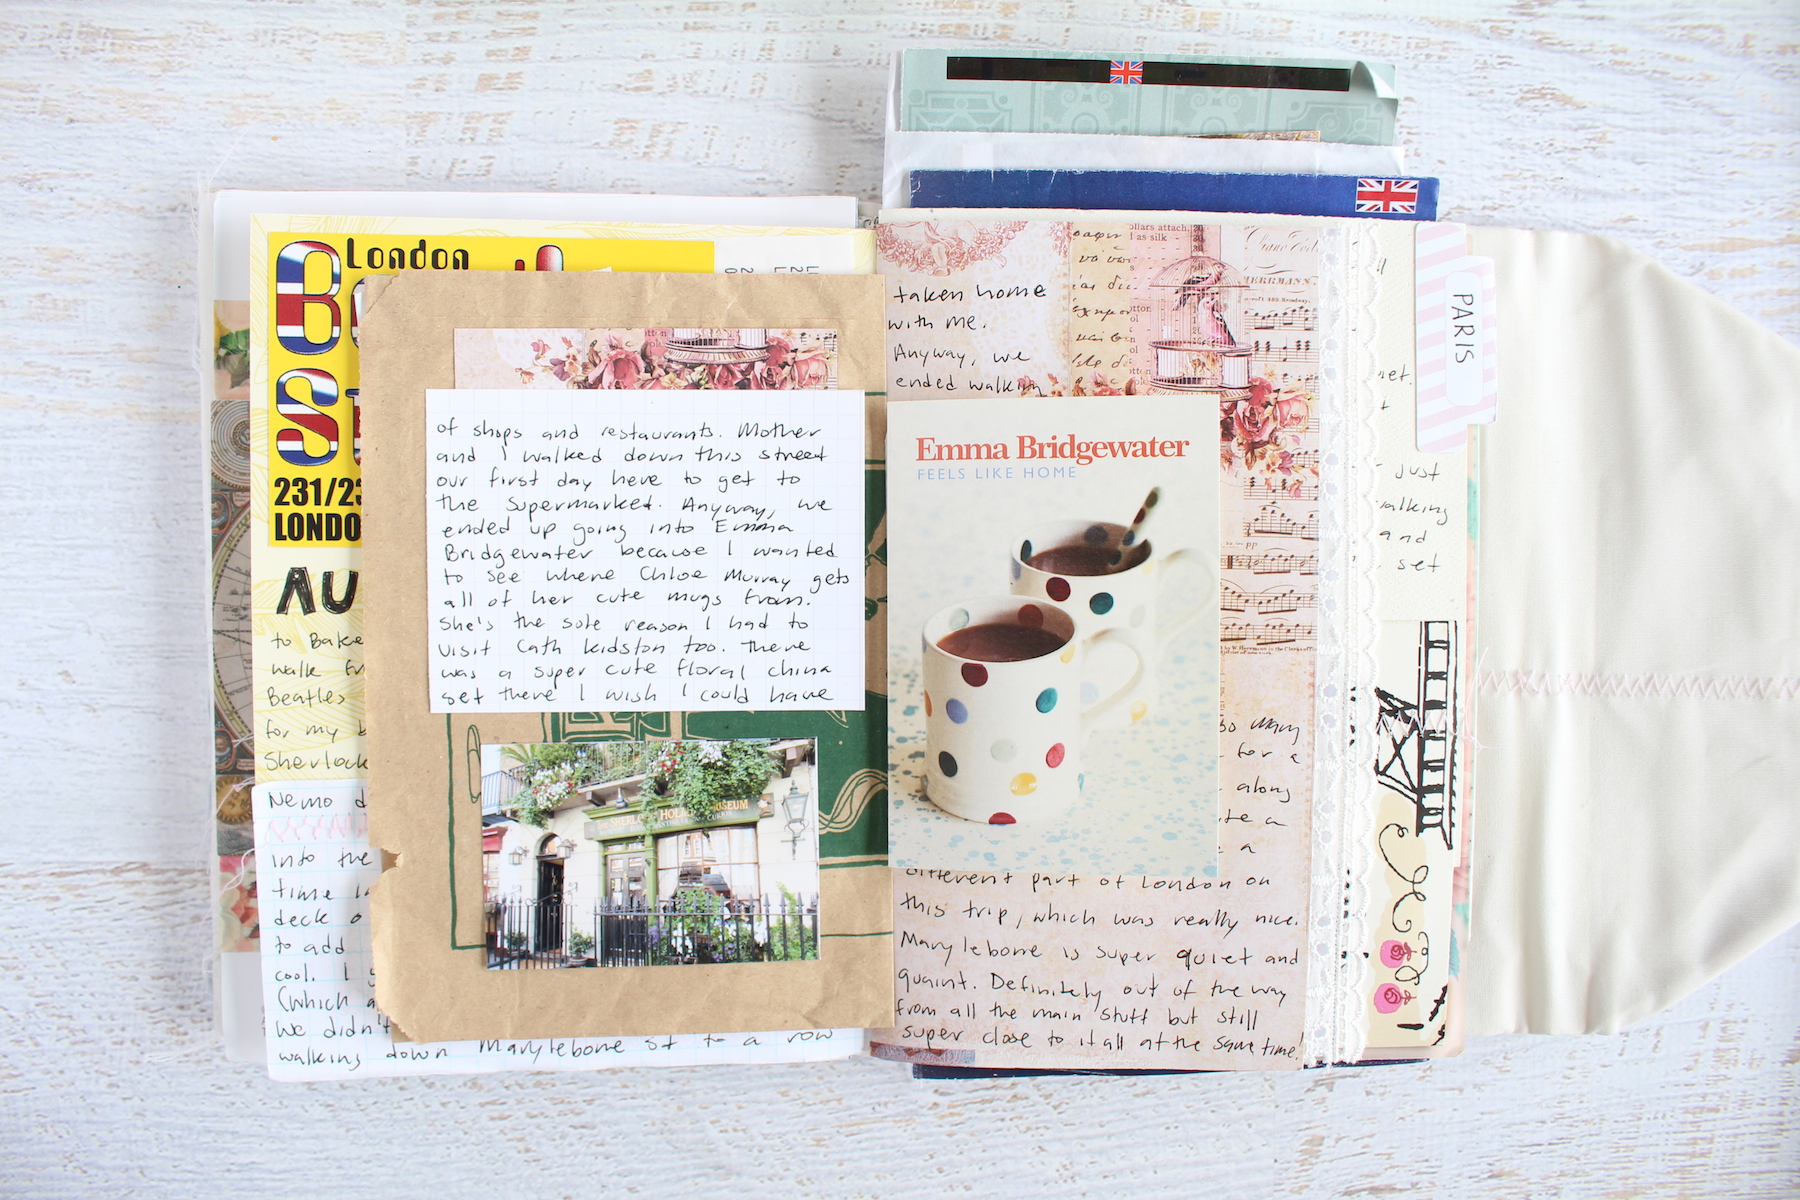 London
231/23
LONDO
AU
to Bake
walk fr
Beatles
for my b
Sherlock
Nemo d
into the
time
deck o
to add
cool. I
(which a
we didn't
walking down Marylebone St to a row
of shops and restaurants. Mother
and I walked down this street
our first day here to get to
the supermarket. Anyway, we
ended up going into Emma
Bridgewater because I wanted
to see where Chloe Murray gets
all of her cute mugs from.
She's the sole reason I had to
visit Cath Kidston too. There
was a super cute floral china
set there I wish I could have
SHERLOCK HOLMES MUSEUM
taken home
with me.
Anyway, we
ended walking
ollars attach
as silk
HERRMANN.
Emma Bridgewater
FEELS LIKE HOME
so many
for a
along
a
a
different part of London on
this trip, which was really nice.
Marylebone is super quiet and
quaint. Definitely out of the way
from all the main stuff but still
super close to it all at the same time!
PARIS
just
walking
and
set